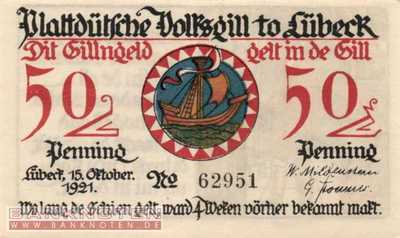 Plattdütsche Volksgill to Lübeck
Dit Gillngeld gelt in de Gill
50 50
Penning Penning
Lübeck, 15. Oktober.
1921.
No 62951
Wo lang de Schien gelt, ward 4 Weken vörher bekannt makt.
BANKNOTEN
WWW.BANKNOTEN.DE